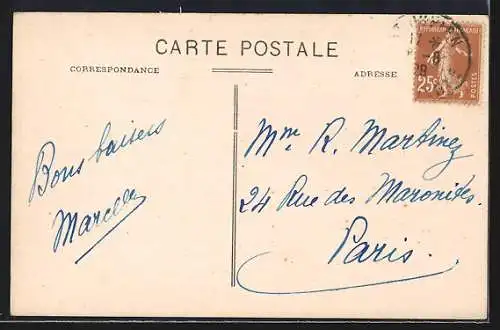 CARTE POSTALE
CORRESPONDANCE
ADRESSE
25c
POSTES
Bons baisers
Marcelle
Mme R. Martinez
24 Rue des Maronites.
Paris.